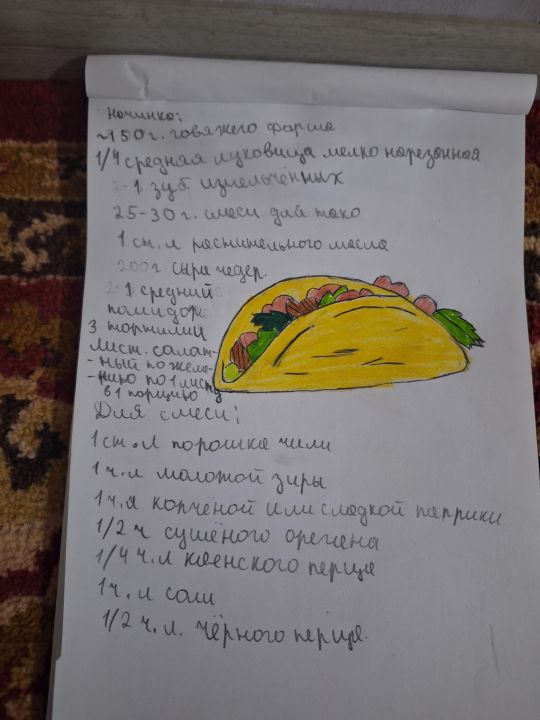 Начинка:
~150г. говяжего фарша
1/4 средняя луковица мелко нарезанная
2-1 зуб. измельчённых
25-30 г. смеси для тако
1 ст. л растительного масла
200г сыра чедер.
2-1 средний
помидор
3 тортилии
лист. салат-
-ный по жела-
-нию по 1 листу
в 1 порцию
Для смеси:
1 ст. л порошка чили
1 ч. л молотой зиры
1 ч. л копчёной или сладкой паприки
1/2 ч сушёного орегена
1/4 ч. л каенского перца
1 ч. л соли
1/2 ч. л. чёрного перца.